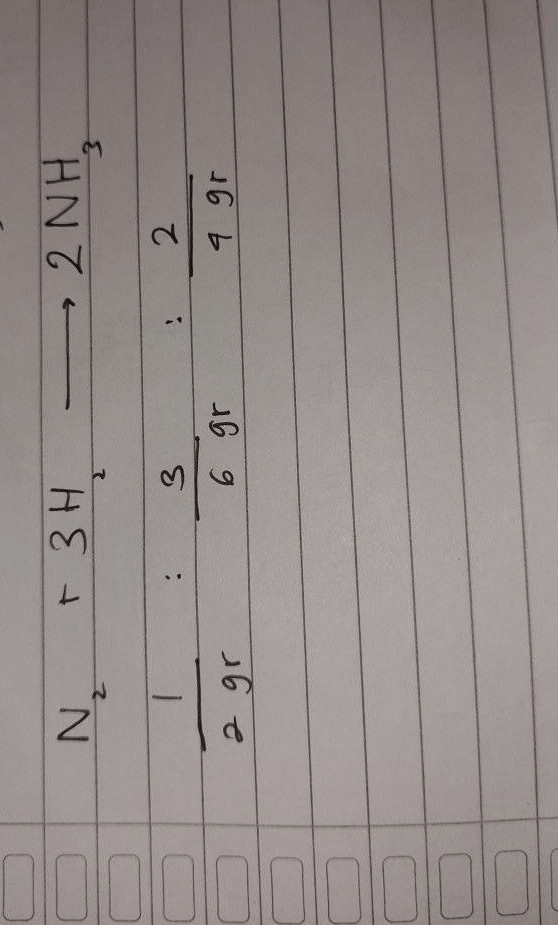 N₂ + 3H₂ → 2NH₃
1 : 3 : 2
2 gr 6 gr 4 gr